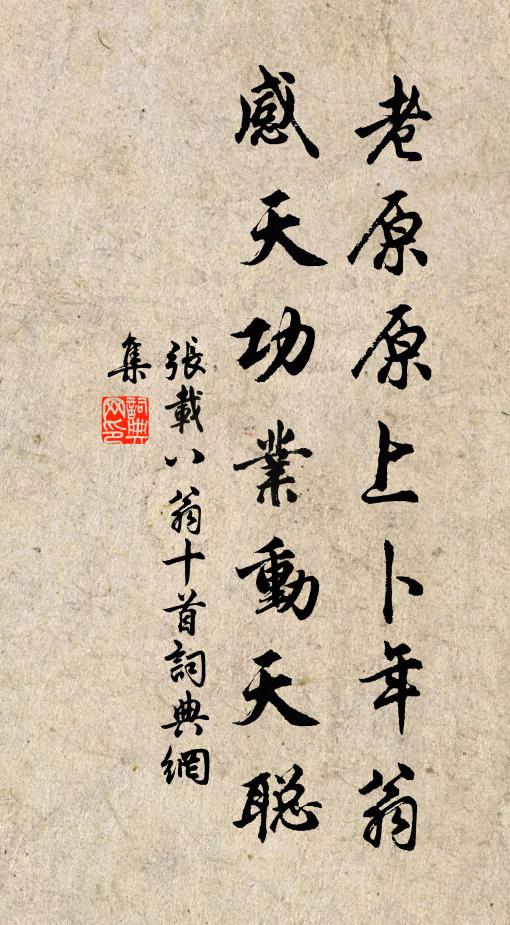 老原原上卜年翁
感天功業動天聪
張載八翁十首詞典網
集
詞典
网印